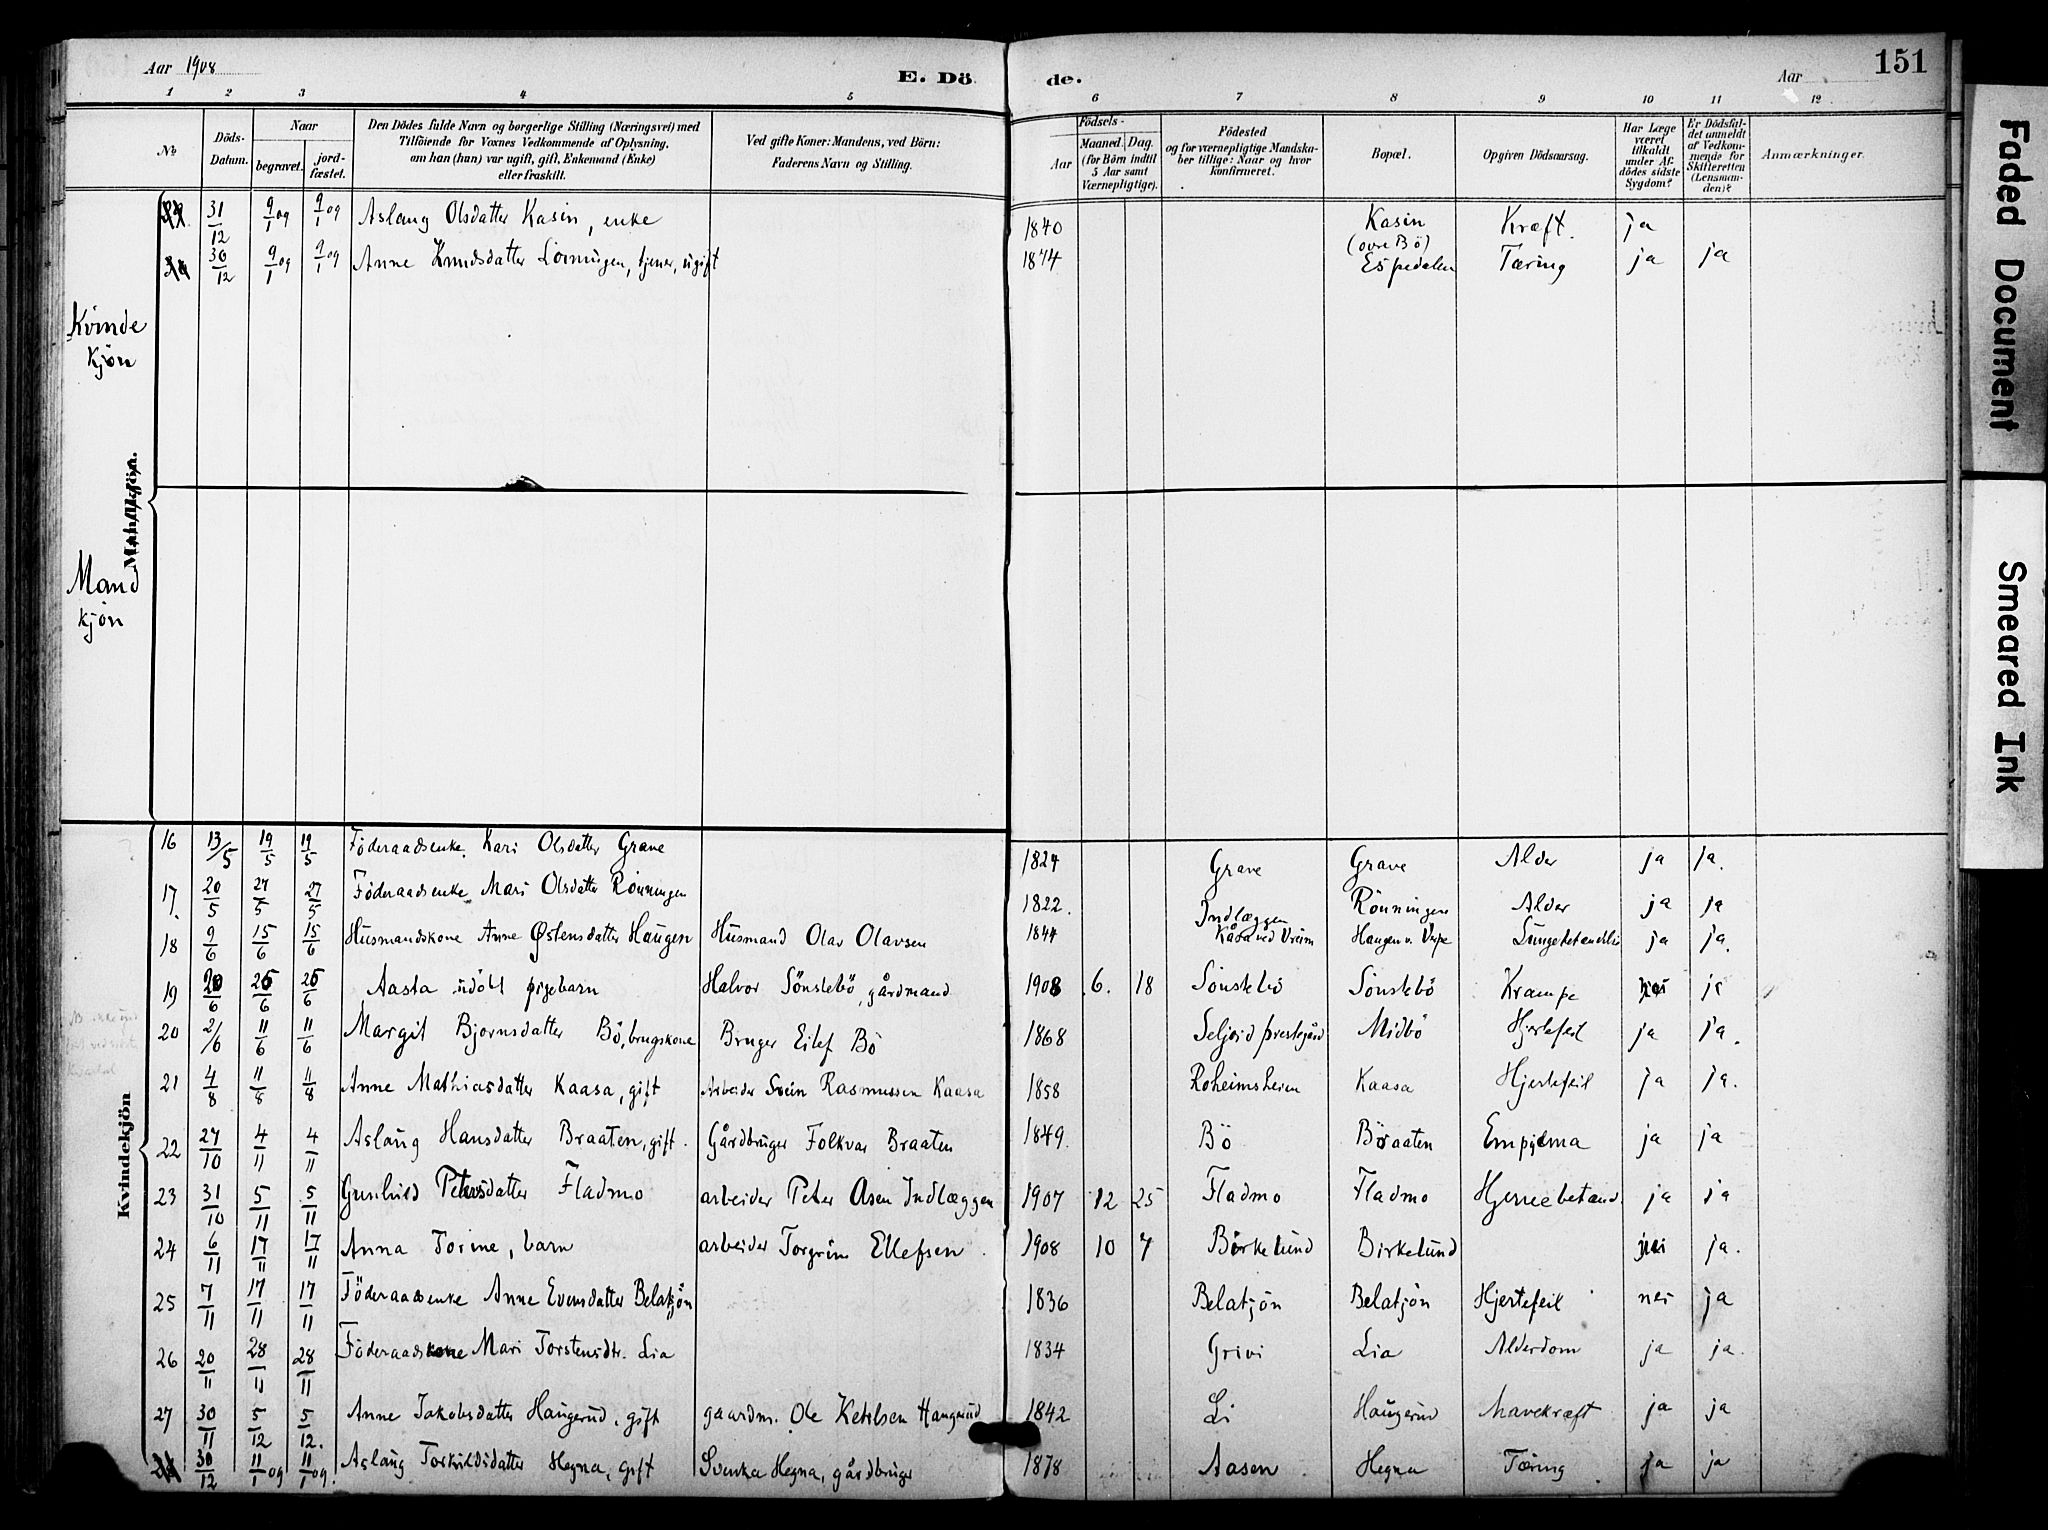 Aar 1908
E. Dö
de.
Aar
151
1 2 3 4 5 6 7 8 9 10 11 12
№
Döds-
Datum.
Naar
begravet.
jord-
fæstet.
Den Dödes fulde Navn og borgerlige Stilling (Næringsvei) med
Tilföiende for Voxnes Vedkommende af Oplysning,
om han (hun) var ugift, gift, Enkemand (Enke)
eller fraskilt.
Ved gifte Koner: Mandens, ved Börn:
Faderens Navn og Stilling.
Födsels-
Aar
Maaned.
Dag.
(for Börn indtil
5 Aar samt
Værnepligtige).
Födested
og for værnepligtige Mandska-
ber tillige: Naar og hvor
konfirmeret.
Bopæl.
Opgiven Dödsaarsag.
Har Læge
været
tilkaldt
under Af-
dödes sidste
Sygdom?
Er Dödsfal-
det anmeldt
af Vedkom-
mende for
Skifteretten
(Lensman-
den)?
Anmærkninger.
31/12 9/1 09 9/1 09 Aslaug Olsdatter Kasin, enke 1840 Kasin (øvre Bö) Kræft. ja
30/12 9/1 09 9/1 09 Anne Knudsdatter tjener, ugift 1874 Espedalen Tæring ja ja
Kvinde
kjön
Mandkjön.
Mand
kjön
Kvindekjön
16 13/5 19/5 19/5 Föderaadsenke Kari Olsdatter Grave 1824 Grave Grave Alder ja ja.
17. 20/5 27/5 27/5 Föderaadsenke Mari Olsdatter Rönningen 1822. Indlæggen Rönningen Alder ja ja
18 9/6 15/6 15/6 Husmandskone Anne Østensdatter Haugen Husmand Olav Olavsen 1844 Kåsa ved Vreim Haugen v. ja ja.
19 20/6 26/6 26/6 Aasta udöbt pigebarn Halvor Sönstebö, gårdmand 1908 6. 18 Sönstebö Sönstebö Krampe nei ja
20 2/6 11/6 11/6 Margit Bjornsdatter Bö, brugskone Bruger Eilef Bö 1868 Seljord prestegård Midbö Hjertefeil ja ja.
21 4/8 11/8 11/8 Anne Mathiasdatter Kaasa, gift Arbeider Svein Rasmussen Kaasa 1858 Roheimsheien Kaasa Hjertefeil ja ja.
22 27/10 4/11 4/11 Aslaug Hansdatter Braaten, gift. Gårdbruger Folkvar Braaten 1849. Bö Braaten Empyema ja ja
23 31/10 5/11 5/11 Gunhild Petersdatter Fladmo arbeider Peter Osen Indlæggen 1907 12 25 Fladmo Fladmo Hjernebetænd. ja ja
24 6/11 17/11 17/11 Anna Torine, barn arbeider Torgrim Ellefsen. 1908 10 7 Birkelund Birkelund nei ja.
25 7/11 17/11 17/11 Föderaadsenke Anne Evensdatter Belatjön 1836 Belatjön Belatjön Hjertefeil nei ja
26 20/11 28/11 28/11 Föderaadskone Mari Torstensdtr. Lia 1834 Grivi Lia Alderdom ja ja.
27 30/11 5/12 5/12. Anne Jakobsdatter Haugerud, gift gaardm. Ole Ketilsen Haugerud 1842 Li Haugerud Mavekræft ja ja
30/12 11/1 09 11/1 09. Aslaug Torkildsdatter Hegna, gift Hegna, gårdbruger 1878 Aasen Hegna Tæring ja ja
Faded Document
Smeared Ink